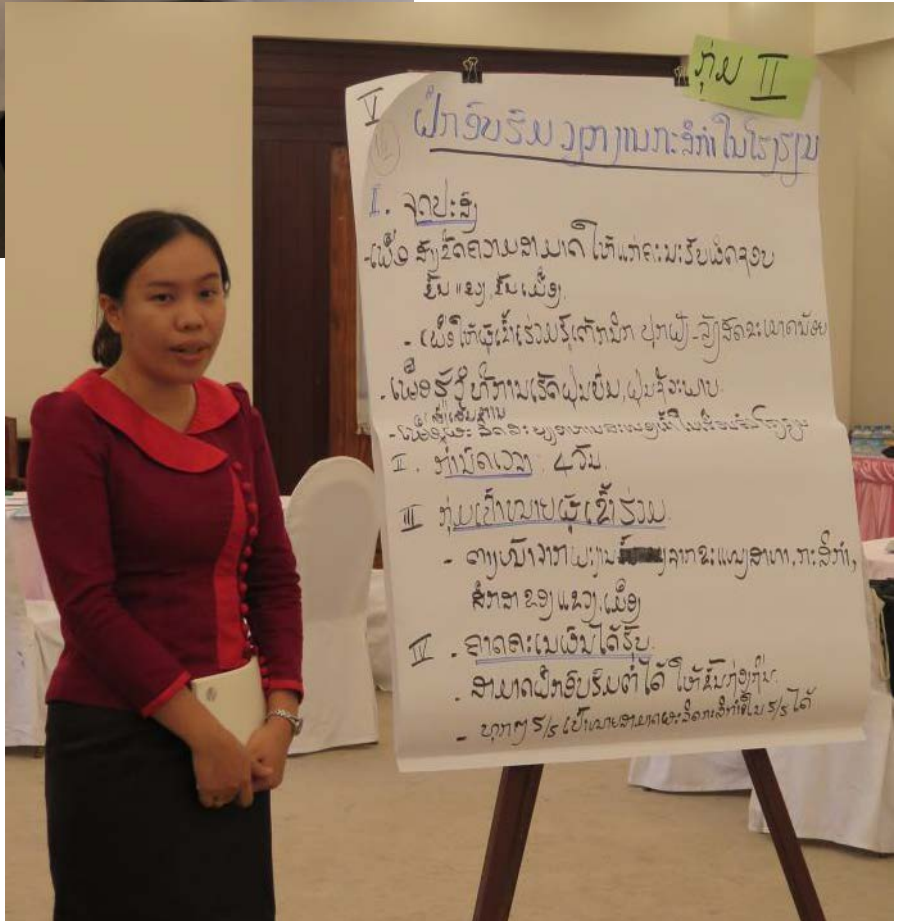 ກຸ່ມ II
V ຝຶກອົບຮົມ ວຽກງານກະສິກຳໃນໂຮງຮຽນ
I. ຈຸດປະສົງ
-ເພື່ອ ສ້າງຂີດຄວາມສາມາດ ໃຫ້ແກ່ຄະນະຮັບຜິດຊອບ
ຂັ້ນ ແຂວງ, ຂັ້ນ ເມືອງ.
- ເພື່ອໃຫ້ຜູ້ເຂົ້າຮ່ວມຮູ້ເຕັກນິກ ປູກຝັງ-ລ້ຽງສັດຂະໜາດນ້ອຍ
- ເພື່ອຮູ້ວິທີການເຮັດຝຸ່ນບົ່ມ, ຝຸ່ນຊີວະພາບ.
II. ກຳນົດເວລາ : 4 ວັນ.
III ກຸ່ມເປົ້າໝາຍຜູ້ເຂົ້າຮ່ວມ
ຈາກຂະແໜງສາທາ, ກະສິກຳ,
ສຶກສາ ຂອງ ແຂວງ, ເມືອງ
IV . ຄາດຄະເນຜົນໄດ້ຮັບ.
- ສາມາດຝຶກອົບຮົມຕໍ່ໄດ້ ໃຫ້ຂັ້ນກ່ຽວກັບ.
- ທຸກໆ ຮ/ຮ ເປົ້າໝາຍສາມາດຜະລິດກະສິກຳໃນ ຮ/ຮ ໄດ້